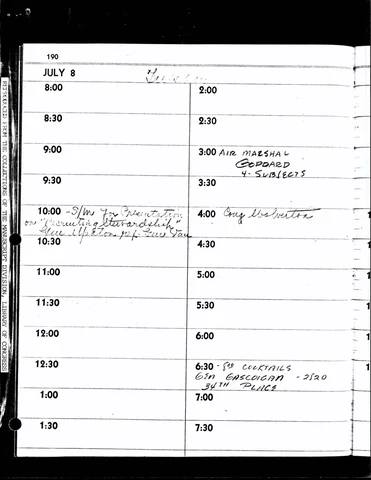 190
JULY 8
Tuesday
8:00
8:30
9:00
9:30
10:00 - S/Me for Presentation
on "Recruiting Stewardship"
10:30
11:00
11:30
12:00
12:30
1:00
1:30
2:00
2:30
3:00 AIR MARSHAL
GODDARD
4 - SUBJECTS
3:30
4:00 Cong Wolverton
4:30
5:00
5:30
6:00
6:30 - 8:30 COCKTAILS
GEN GASCOIGAN - 2820
34TH PLACE
7:00
7:30
REPRODUCED FROM THE COLLECTIONS OF THE MANUSCRIPT DIVISION, LIBRARY OF CONGRESS